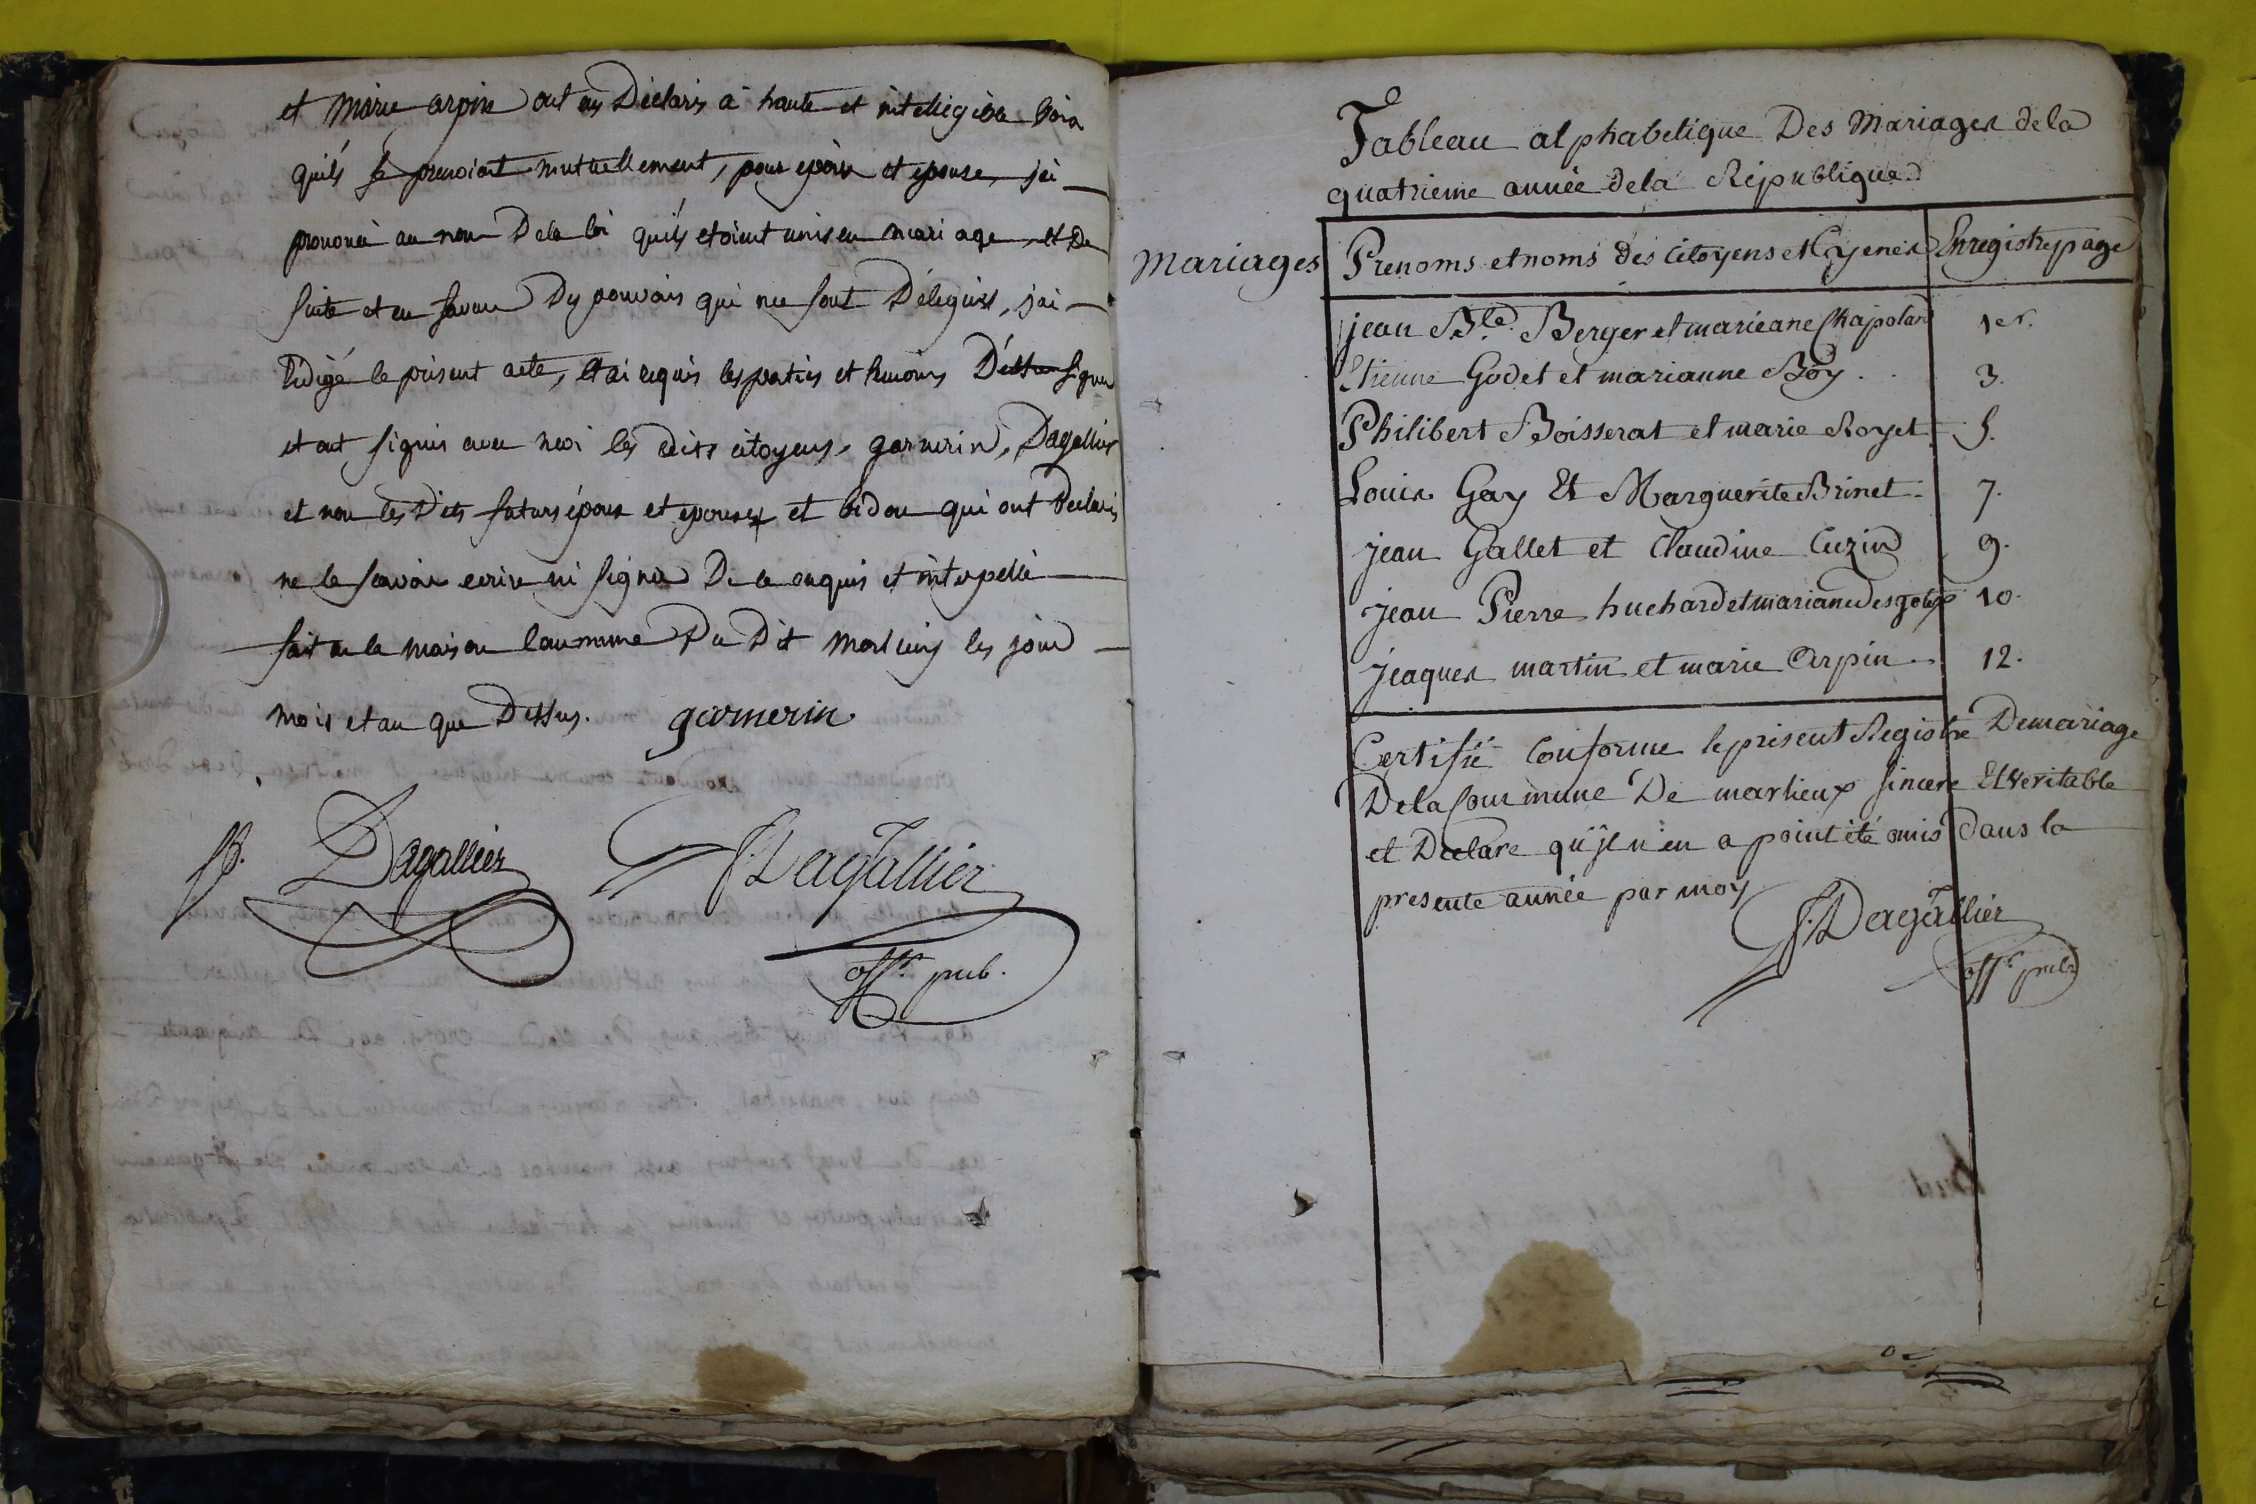 et Marie arpin ont eu Déclarés a haute et intelligible Voix
quils se prenoient mutuellement, pour epoux et epouse, jai
prononcé au nom De la loi quils etoient unis en mariage, et De
suite et en faveur Des pouvoirs qui me sont Délegués, jai
Redigé le présent acte, et ai requis les parties et temoins D'etre signer
et ont signés avec moi les dits citoyens, garnerin, Dagallier
et non les Dits futurs époux et epouse et bidon qui ont Declarés
ne le savoir ecrire ni signer De ce enquis et interpellé
fait en la maison Commune Du Dit Marlieux les jour
mois et an que Dessus. garnerin
JB. Dagallier J. Dagallier
offr. pub.
Tableau alphabetique Des Mariages de la
quatrieme année dela Republique
Mariages
Prenoms et noms des Citoyens et Cyenes Enregistre page
jean Bte. Berger et marieane Chapolard 1er.
Etienne Godet et marianne Boy . . 3.
Philibert Boisserat et marie Royet. 5.
Louis Gay Et Marguerite Brinet. 7.
jean Gallet et Claudine Cuzin 9.
jean Pierre huchard et mariane desgotex 10.
jeaques martin et marie Arpin.. 12.
Certifié Conforme le présent Registre De mariage
De la Commune De marlieux sincere Et veritable
et Declare qu'jl n'en a point été omis dans la
presente année par moy
J. Dagallier
offr. pub.